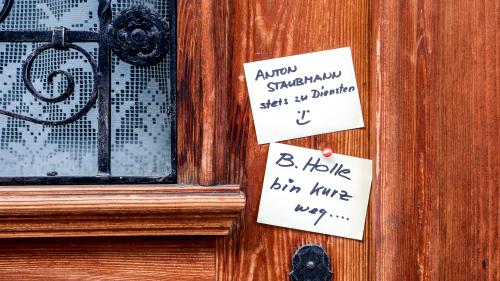 ANTON
STAUBMANN
stets zu Diensten
B. Holle
bin kurz
weg....